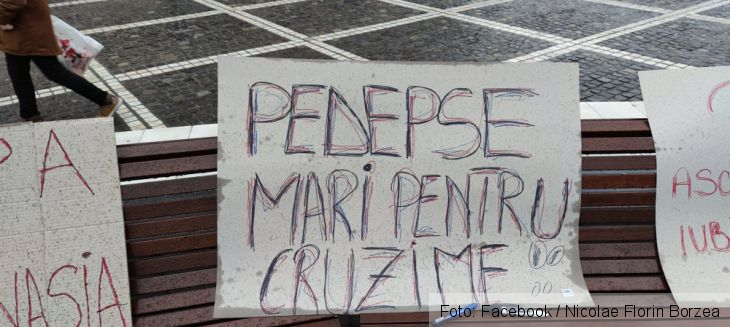 PEDEPSE
MARI PENTRU
CRUZIME
PA
NASIA
ASC
IUB
Foto: Facebook / Nicolae Florin Borzea